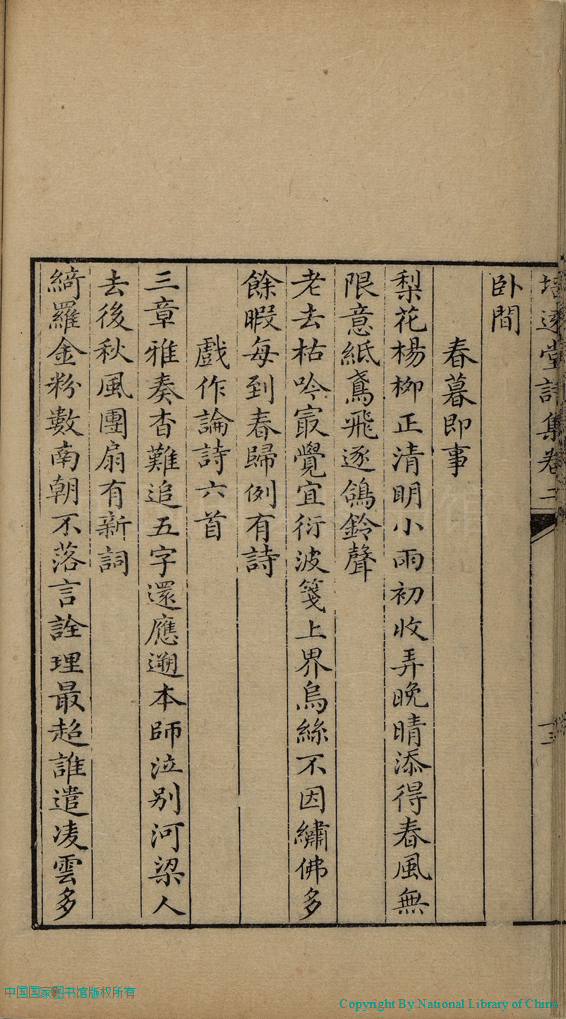 堂詩集卷二
十三
卧間
春暮即事
梨花楊柳正清明小雨初收弄晚晴添得春風無
限意紙鳶飛逐鴿鈴聲
老去枯吟㝡覺宜衍波箋上界烏絲不因繡佛多
餘暇每到春歸例有詩
戲作論詩六首
三章雅奏杳難追五字還應遡本師泣别河梁人
去後秋風團扇有新詞
綺羅金粉數南朝不落言詮理最超誰遣凌雲多
中国国家图书馆版权所有
Copyright By National Library of China